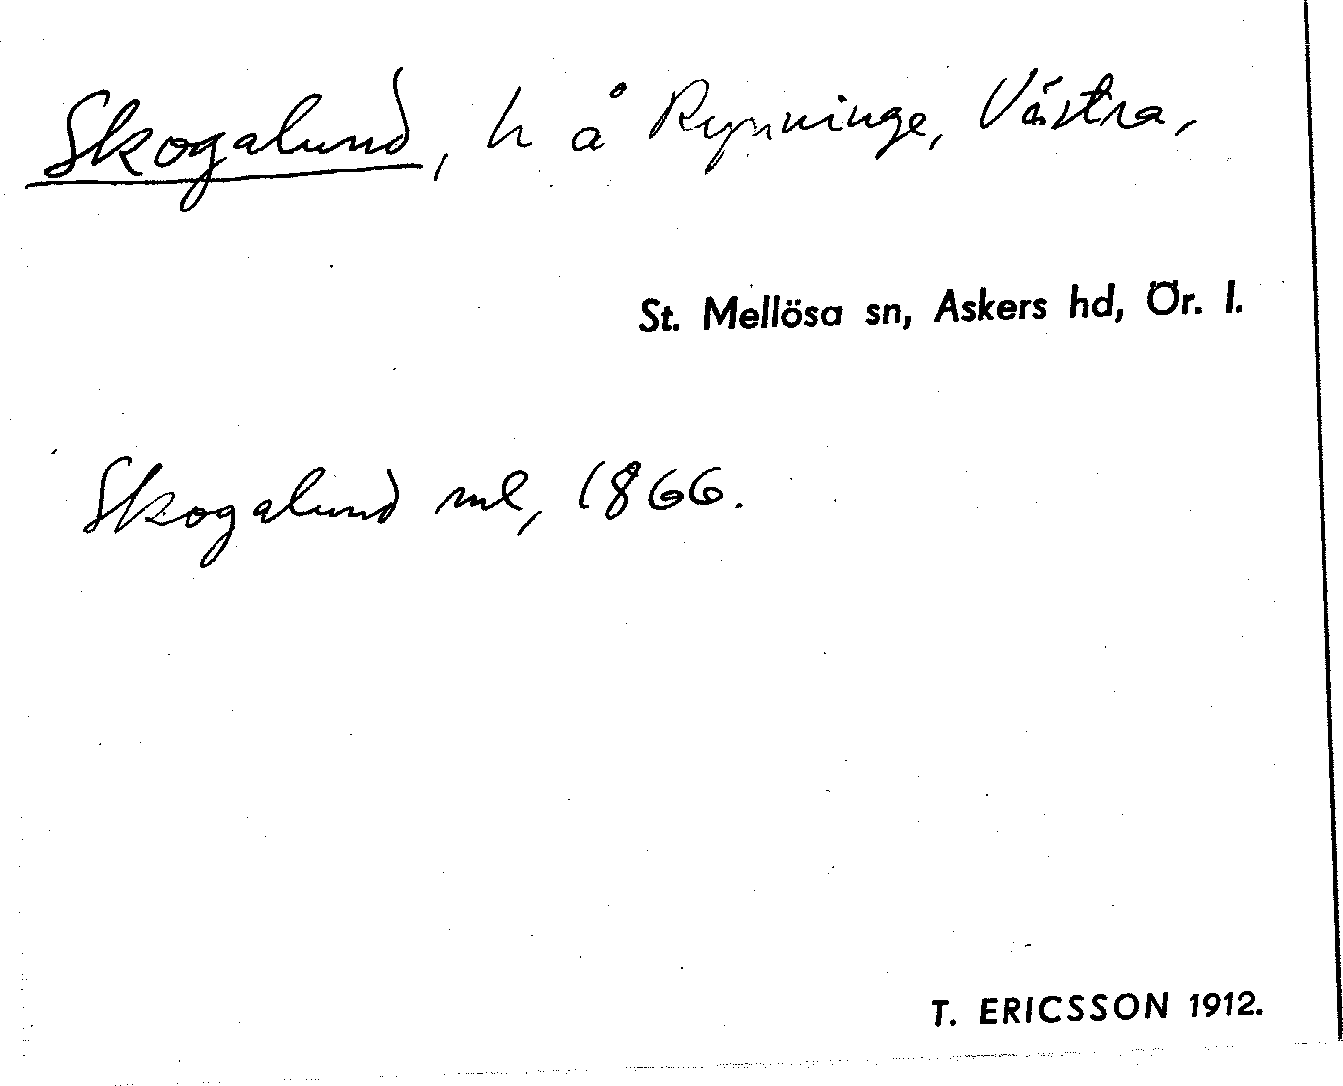 Skogalund, h å Rynninge, Västra,
St. Mellösa sn, Askers hd, Ör. l.
Skogalund ml, 1866.
T. ERICSSON 1912.